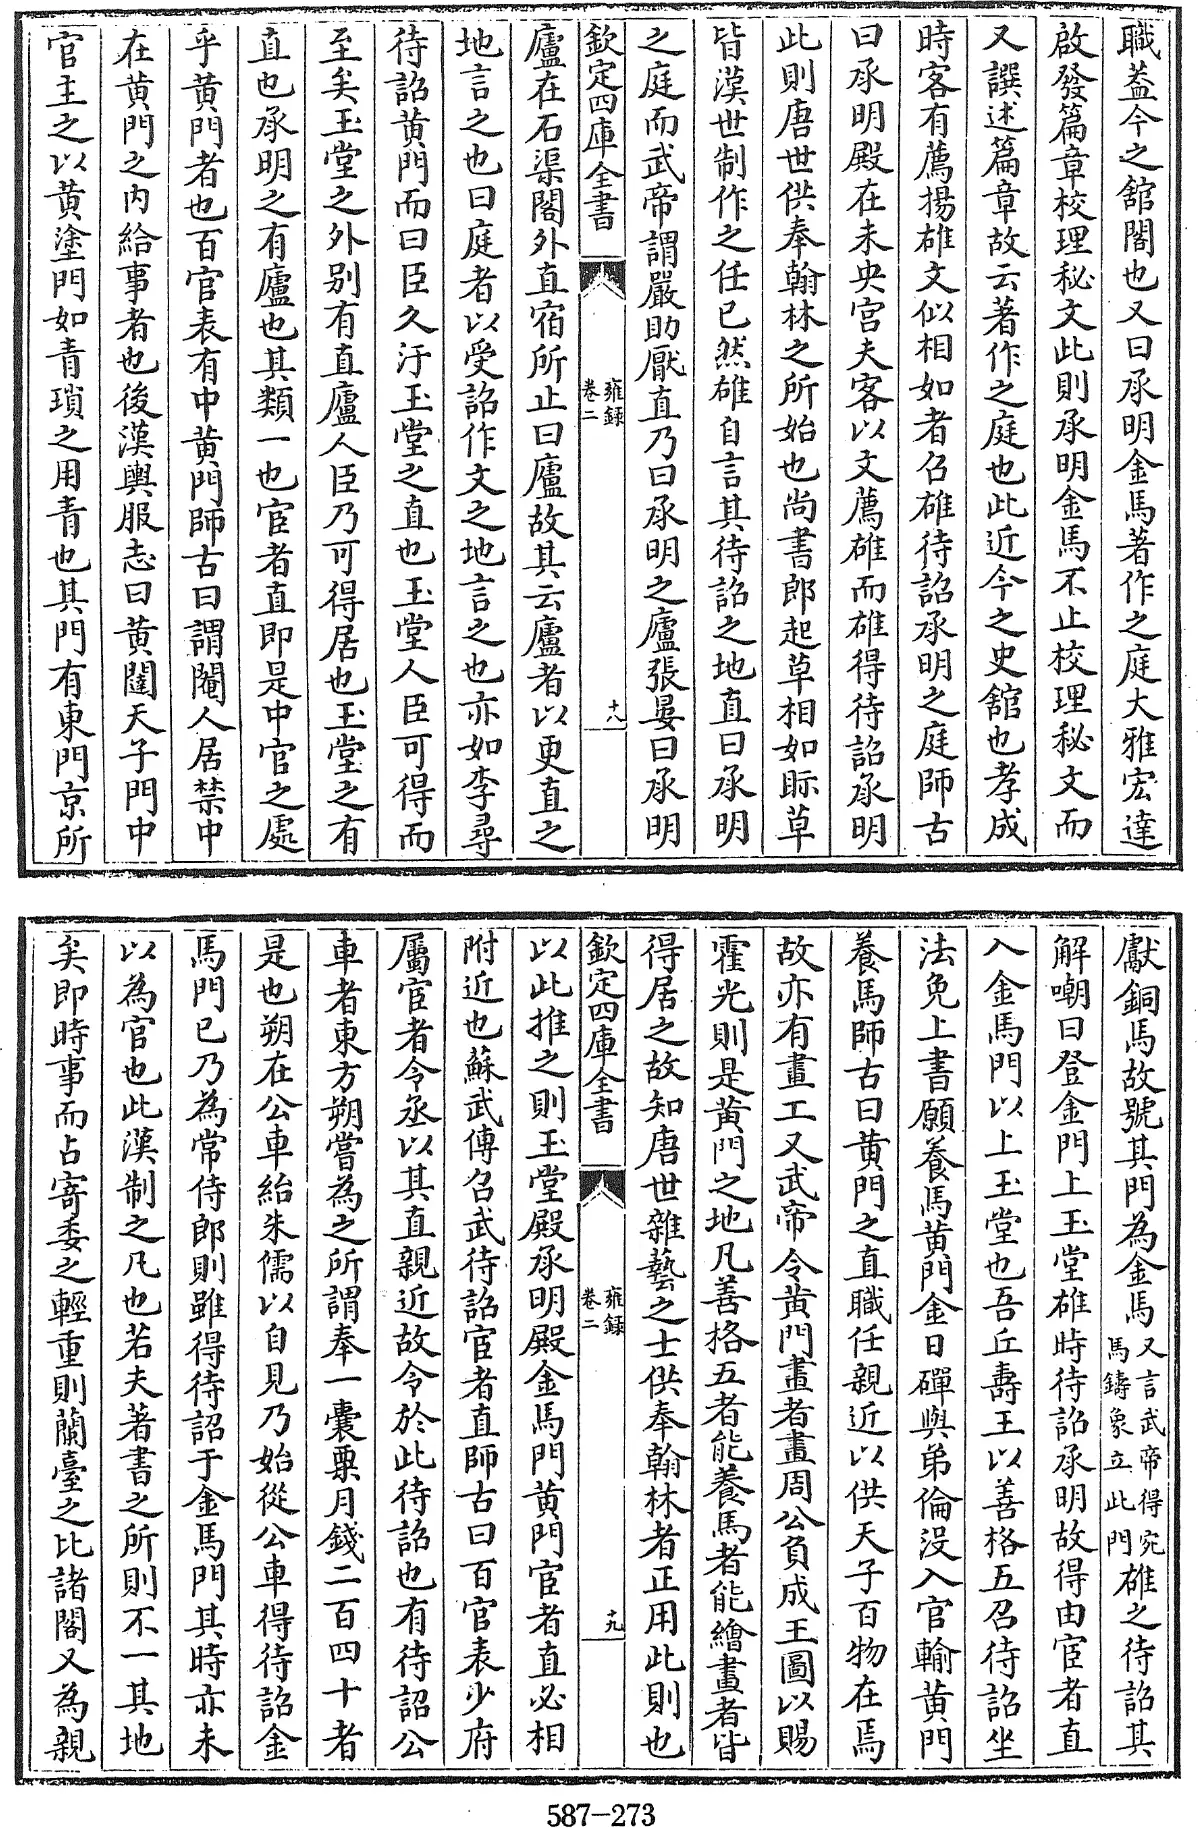 職葢今之舘閣也又曰承明金馬著作之庭大雅宏達
啟發篇章校理秘文此則承明金馬不止校理秘文而
又譔述篇章故云著作之庭也此近今之史舘也孝成
時客有薦揚雄文似相如者召雄待詔承明之庭師古
曰承明殿在未央宫夫客以文薦雄而雄得待詔承明
此則唐世供奉翰林之所始也尚書郎起草相如眎草
皆漢世制作之任已然雄自言其待詔之地直曰承明
之庭而武帝謂嚴助厭直乃曰承明之廬張晏曰承明
欽定四庫全書
雍録
卷二
十八
廬在石渠閣外直宿所止曰廬故其云廬者以更直之
地言之也曰庭者以受詔作文之地言之也亦如李尋
待詔黄門而曰臣久汙玉堂之直也玉堂人臣可得而
至矣玉堂之外别有直廬人臣乃可得居也玉堂之有
直也承明之有廬也其類一也宦者直即是中官之處
乎黄門者也百官表有中黄門師古曰謂閹人居禁中
在黄門之内給事者也後漢輿服志曰黄闥天子門中
官主之以黄塗門如青瑣之用青也其門有東門京所
獻銅馬故號其門為金馬又言武帝得宛馬鑄象立此門雄之待詔其
解嘲曰登金門上玉堂雄時待詔承明故得由宦者直
入金馬門以上玉堂也吾丘壽王以善格五召待詔坐
法免上書願養馬黄門金日磾與弟倫没入官輸黄門
養馬師古曰黄門之直職任親近以供天子百物在焉
故亦有畫工又武帝令黄門畫者畫周公負成王圖以賜
霍光則是黄門之地凡善格五者能養馬者能繪畫者皆
得居之故知唐世雜藝之士供奉翰林者正用此則也
欽定四庫全書
雍録
卷二
十九
以此推之則玉堂殿承明殿金馬門黄門宦者直必相
附近也蘇武傳召武待詔宦者直師古曰百官表少府
屬官者令丞以其直親近故令於此待詔也有待詔公
車者東方朔嘗為之所謂奉一囊粟月錢二百四十者
是也朔在公車紿朱儒以自見乃始從公車得待詔金
馬門已乃為常侍郎則雖得待詔于金馬門其時亦未
以為官也此漢制之凡也若夫著書之所則不一其地
矣即時事而占寄委之輕重則蘭臺之比諸閣又為親
587-273